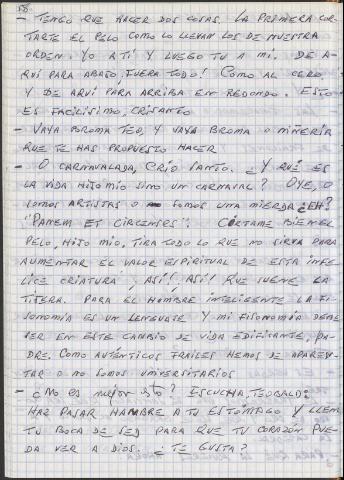 58.
- TENGO QUE HACER DOS COSAS. LA PRIMERA COR-
TARTE EL PELO COMO LO LLEVAN LOS DE NUESTRA
ORDEN. YO A TÍ Y LUEGO TU A MI. DE A-
QUÍ PARA ABAJO, FUERA TODO! COMO AL CERO
Y DE AQUÍ PARA ARRIBA EN REDONDO. ESTO
ES FACILÍSIMO, CRISANTO
- VAYA BROMA TEO, Y VAYA BROMA O NIÑERÍA
QUE TE HAS PROPUESTO HACER
- O CARNAVALADA, CRÍO SANTO. ¿Y QUÉ ES
LA VIDA HIJO MÍO SINO UN CARNAVAL? OYE, O
SOMOS ARTISTAS O SOMOS UNA MIERDA ¿EH?
"PANEM ET CIRCENSES". CÓRTAME BIEN EL
PELO, HIJO MÍO, TIRA TODO LO QUE NO SIRVA PARA
AUMENTAR EL VALOR ESPIRITUAL DE ESTA INFE-
LICE CRIATURA, ASÍ!, ASÍ! QUE SUENE LA
TIJERA. PARA EL HOMBRE INTELIGENTE LA FI-
SONOMÍA ES UN LENGUAJE Y MI FISONOMÍA DEBE
SER EN ESTE CAMBIO DE VIDA EDIFICANTE, PA-
DRE. COMO AUTÉNTICOS FRAILES HEMOS DE APAREN-
TAR O NO SOMOS UNIVERSITARIOS
- ¿NO ES MEJOR ISTO? ESCUCHA, TEOBALD:
HAZ PASAR HAMBRE A TU ESTÓMAGO Y LLEN
TU BOCA DE SED PARA QUE TU CORAZÓN PUE-
DA VER A DIOS. ¿TE GUSTA?